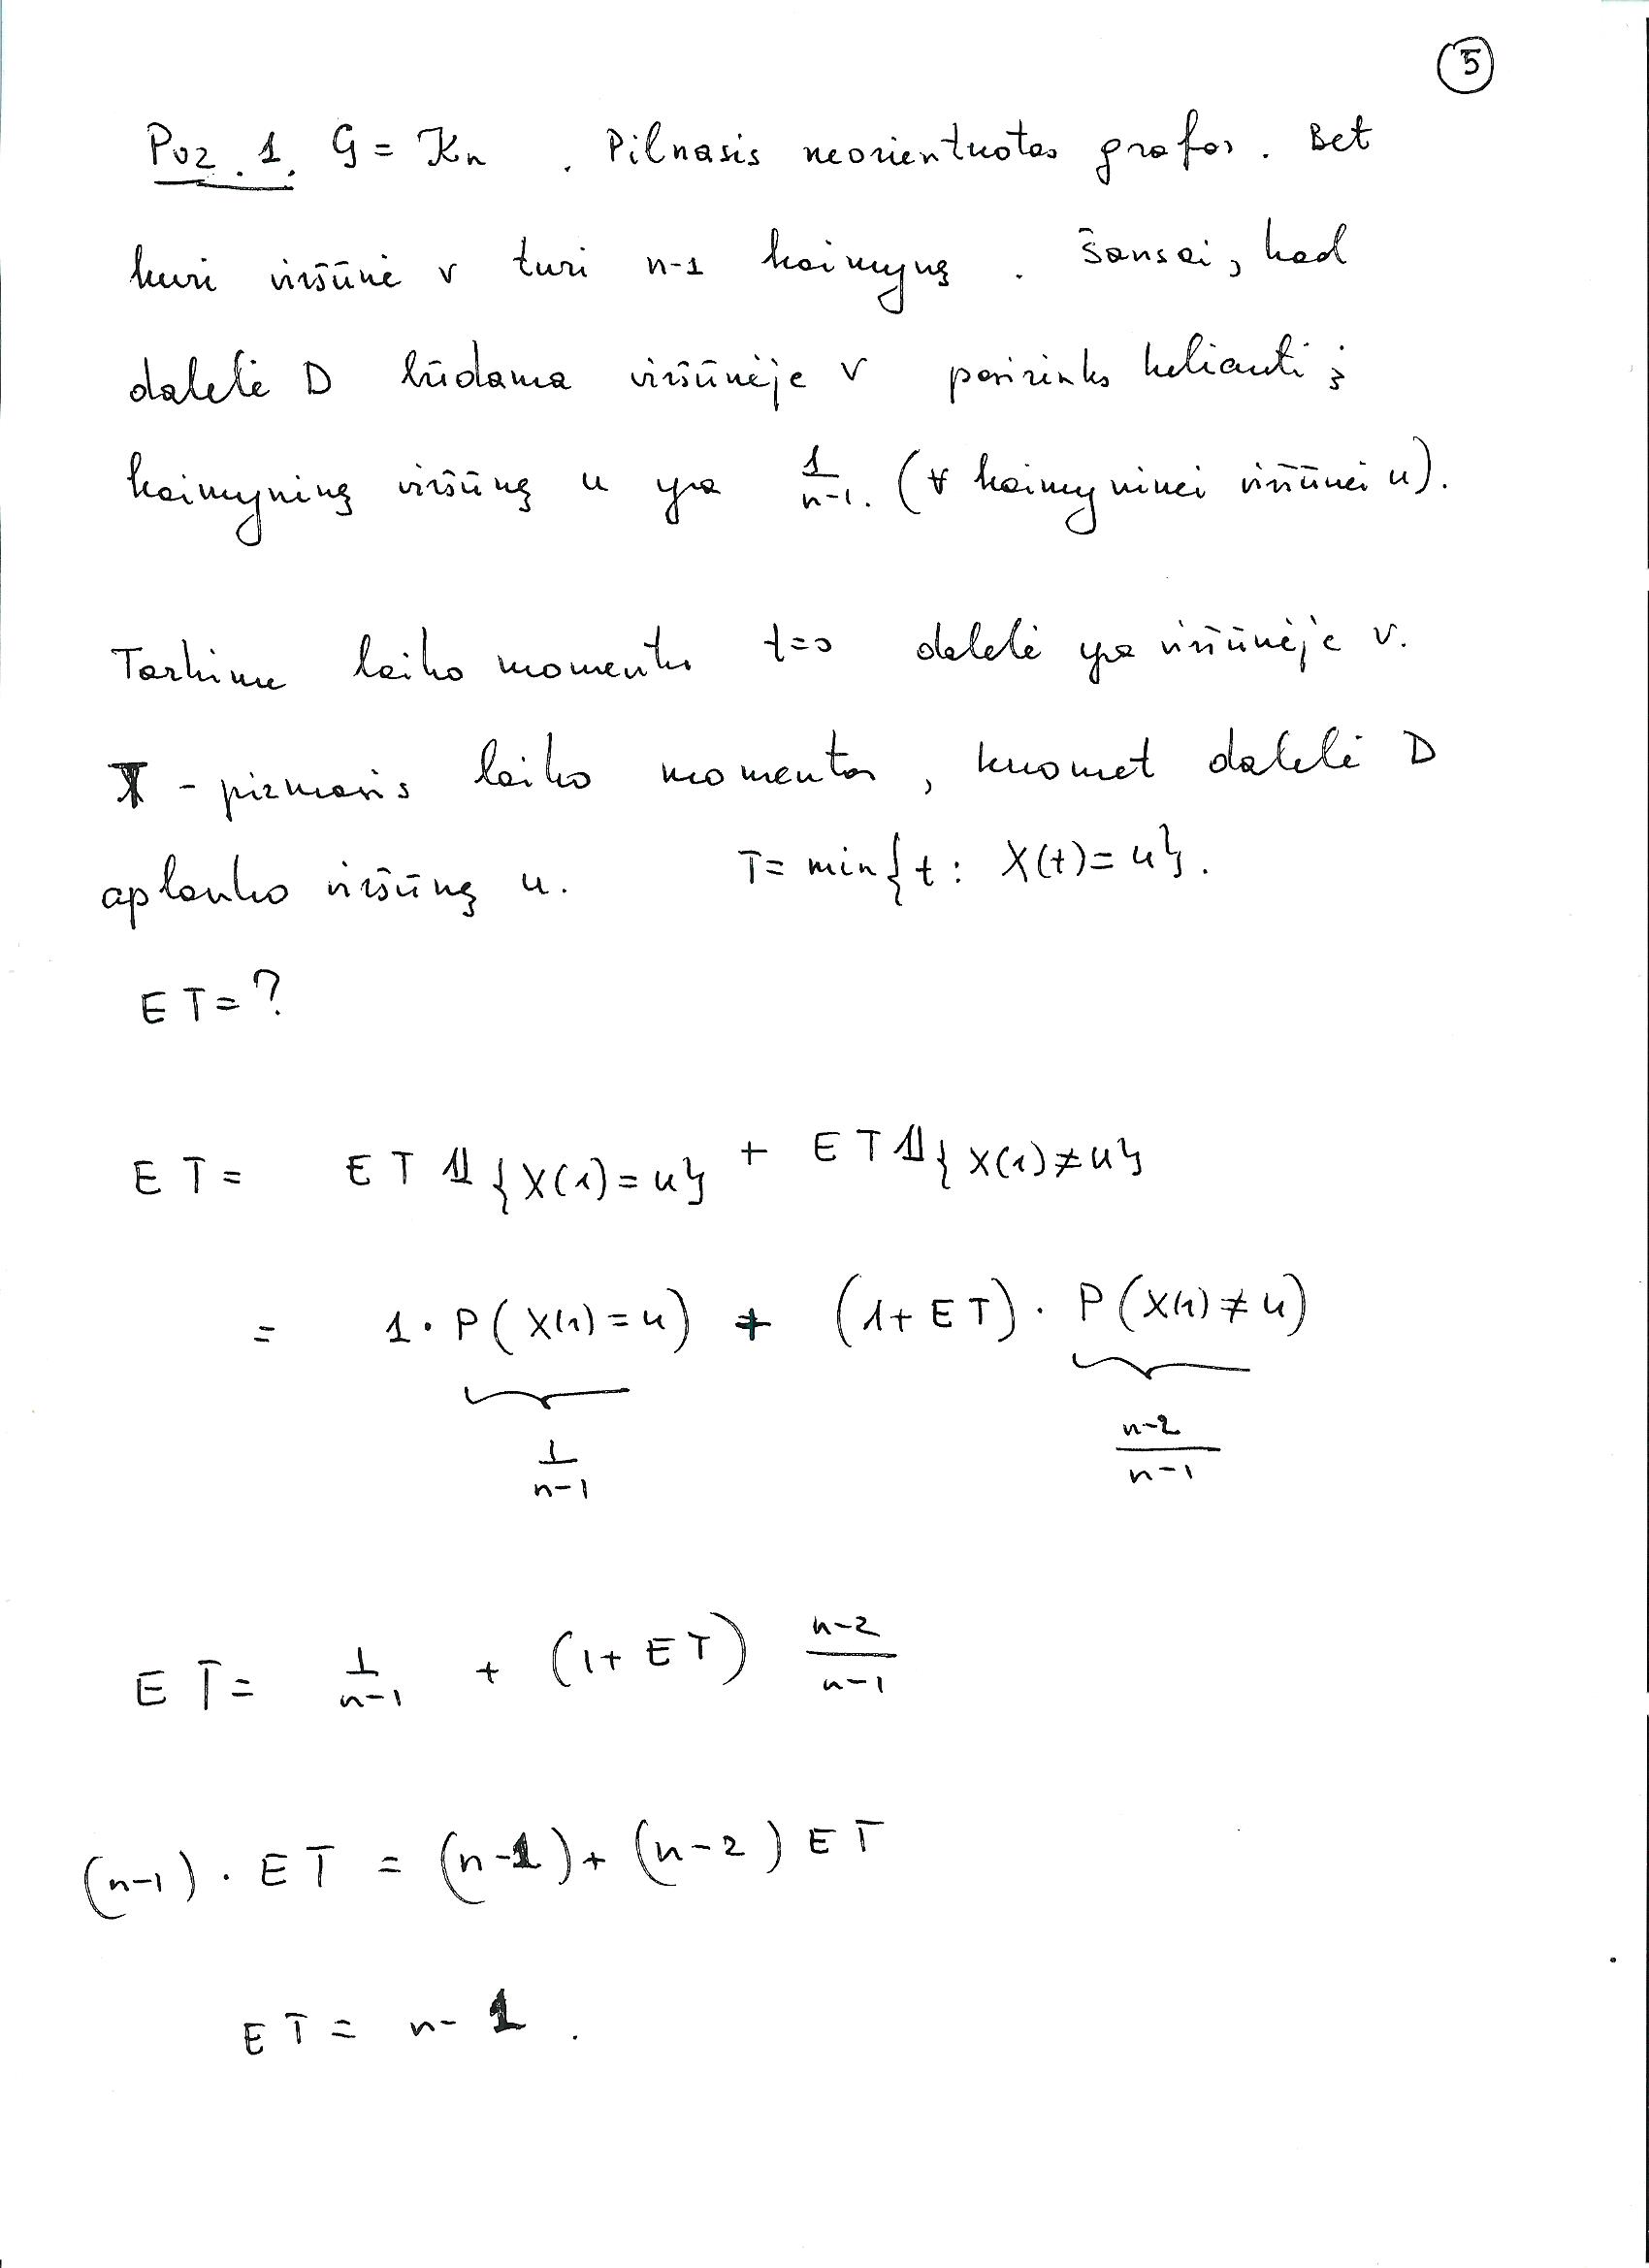 5
Pvz. 1. G = Kn . Pilnasis neorientuotas grafas. Bet
kuri viršūnė v turi n-1 kaimyną. Šansai, kad
dalelė D būdama viršūnėje v pasirinks keliauti į
kaimyninę viršūnę u yra 1/(n-1). (∀ kaimyninei viršūnei u).
Tarkime laiko momentu t=0 dalelė yra viršūnėje v.
T - pirmasis laiko momentas, kuomet dalelė D
aplanko viršūnę u. T = min{t: X(t) = u}.
ET = ?
ET = ET 𝟙{X(1) = u} + ET 𝟙{X(1) ≠ u}
= 1 · P(X(1) = u) + (1 + ET) · P(X(1) ≠ u)
1/(n-1) (n-2)/(n-1)
ET = 1/(n-1) + (1 + ET) (n-2)/(n-1)
(n-1) · ET = (n-1) + (n-2) ET
ET = n-1.